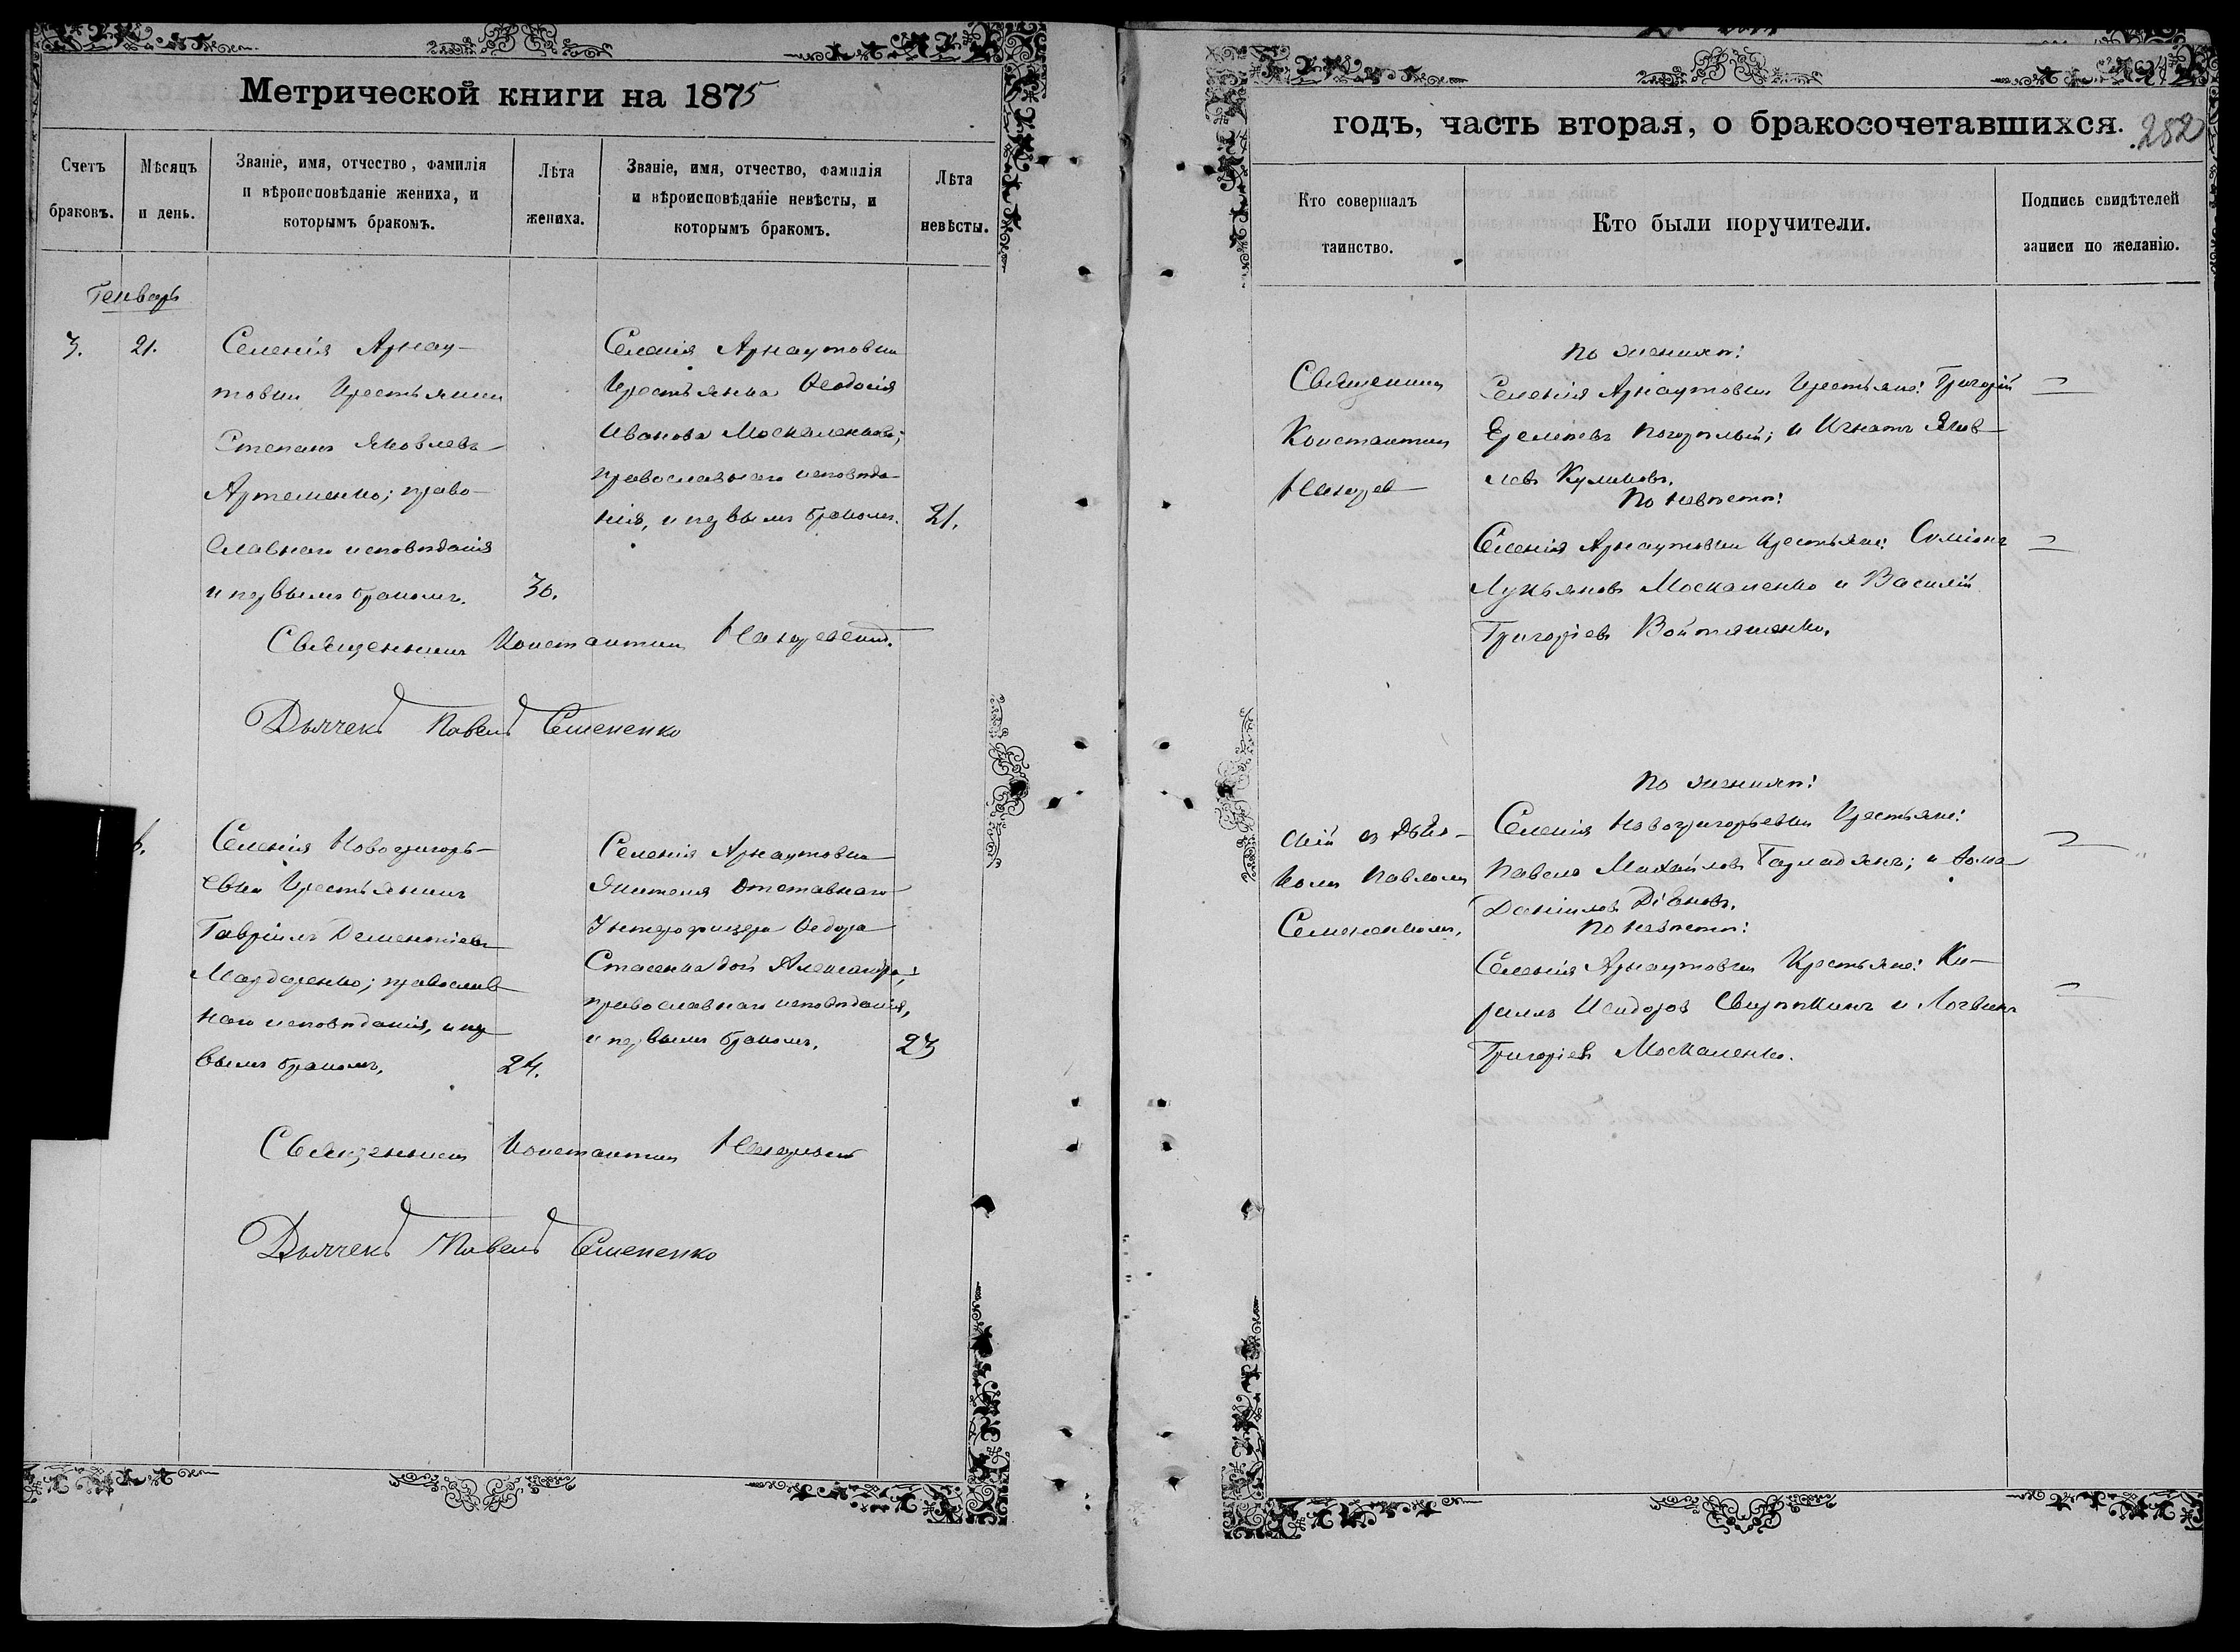 Метрической книги на 1875
Счетъ браковъ.
Мѣсяцъ и день.
Званіе, имя, отчество, фамилія и вѣроисповѣданіе жениха, и которымъ бракомъ.
Лѣта жениха.
Званіе, имя, отчество, фамилія и вѣроисповѣданіе невѣсты, и которымъ бракомъ.
Лѣта невѣсты.
Генварь
3.
21.
Селенія Арнау-
товки Крестьянин
Степанъ Яковлевъ
Артеменко; право-
славнаго исповѣданія
и первымъ бракомъ.
30.
Селенія Арнаутовки
Крестьянка Ѳеодосія
Иванова Москаленкова;
православнаго исповѣда-
нія, и первымъ бракомъ.
21.
Священникъ Константин
Дьячекъ Павелъ Семененко
Селенія Новогригорь-
евки Крестьянинъ
Гавріилъ Дементіевъ
православ-
наго исповѣданія, и пер-
вымъ бракомъ,
24.
Селенія Арнаутовки
Жителя Отставнаго
Унтерофицера Ѳедора
дочь Александра;
православнаго исповѣданія,
и первымъ бракомъ,
23
Священникъ Константин
Дьячекъ Павелъ Семененко
годъ, часть вторая, о бракосочетавшихся.
282
Кто совершалъ таинство.
Кто были поручители.
Подпись свидѣтелей записи по желанію.
Священникъ
Константин
скій съ Дьяч-
комъ Павломъ
Семененкомъ.
По женихѣ:
Селенія Арнаутовки Крестьяне: Григорій
и Игнатъ Яков-
левъ Куликовъ.
По невѣстѣ:
Селенія Арнаутовки Крестьяне: Симіонъ
Лукьяновъ Москаленко и Василій
Григоріевъ Войташенко.
По женихѣ:
Селенія Новогригорьевки Крестьяне:
Павелъ Михайловъ и Ѳома
Даніиловъ
По невѣстѣ:
Селенія Арнаутовки Крестьяне: Ки-
риллъ Исидоровъ и Логвинъ
Григоріевъ Москаленко.